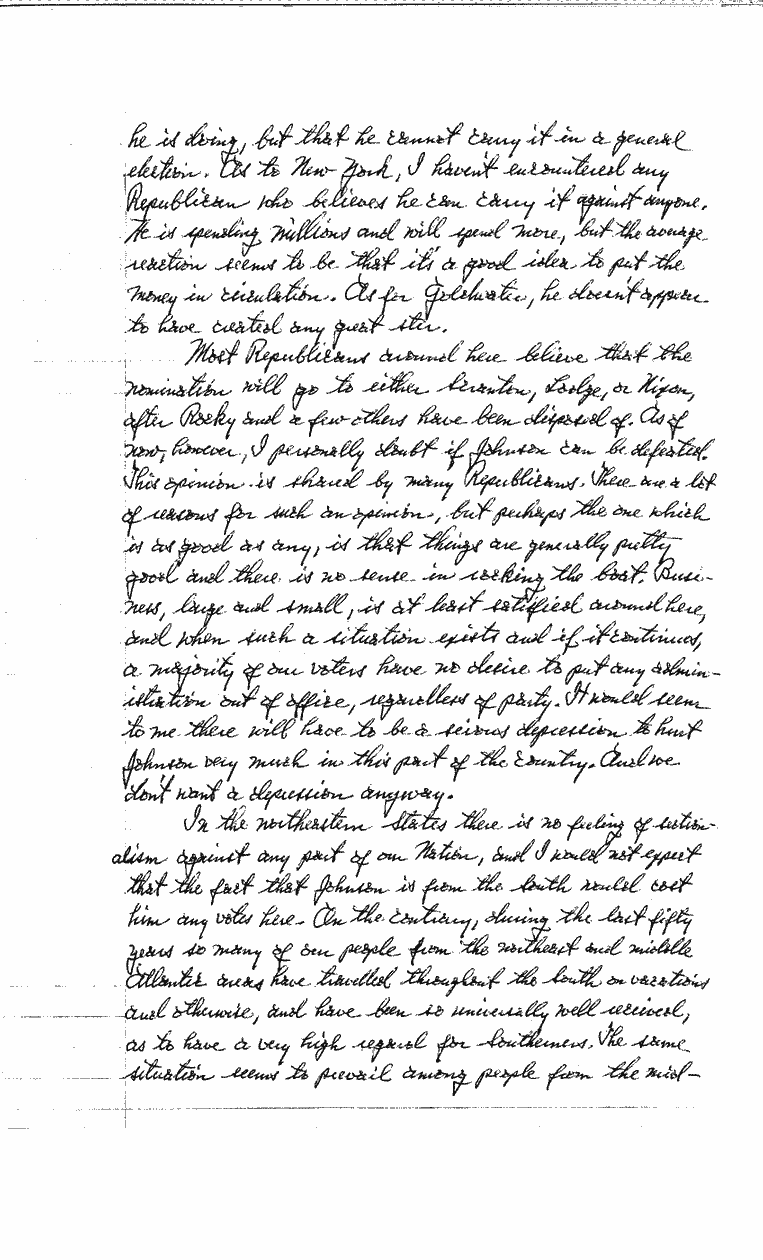 he is doing, but that he cannot carry it in a general
election. As to New York, I haven't encountered any
Republican who believes he can carry it against anyone.
He is spending millions and will spend more, but the average
reaction seems to be that it's a good idea to put the
money in circulation. As for Goldwater, he doesn't appear
to have created any great stir.
Most Republicans around here believe that the
nomination will go to either Scranton, Lodge, or Nixon,
after Rocky and a few others have been disposed of. As of
now, however, I personally doubt if Johnson can be defeated.
This opinion is shared by many Republicans. There are a lot
of reasons for such an opinion, but perhaps the one which
is as good as any, is that things are generally pretty
good and there is no sense in rocking the boat. Busi-
ness, large and small, is at least satisfied around here,
and when such a situation exists and if it continues,
a majority of our voters have no desire to put any admin-
istration out of office, regardless of party. It would seem
to me there will have to be a serious depression to hurt
Johnson very much in this part of the country. And we
don't want a depression anyway.
In the northeastern states there is no feeling of section-
alism against any part of our Nation, and I would not expect
that the fact that Johnson is from the south would cost
him any votes here. On the contrary, during the last fifty
years so many of our people from the northeast and middle
Atlantic areas have travelled throughout the South on vacations
and otherwise, and have been so universally well received,
as to have a very high regard for Southerners. The same
situation seems to prevail among people from the mid-